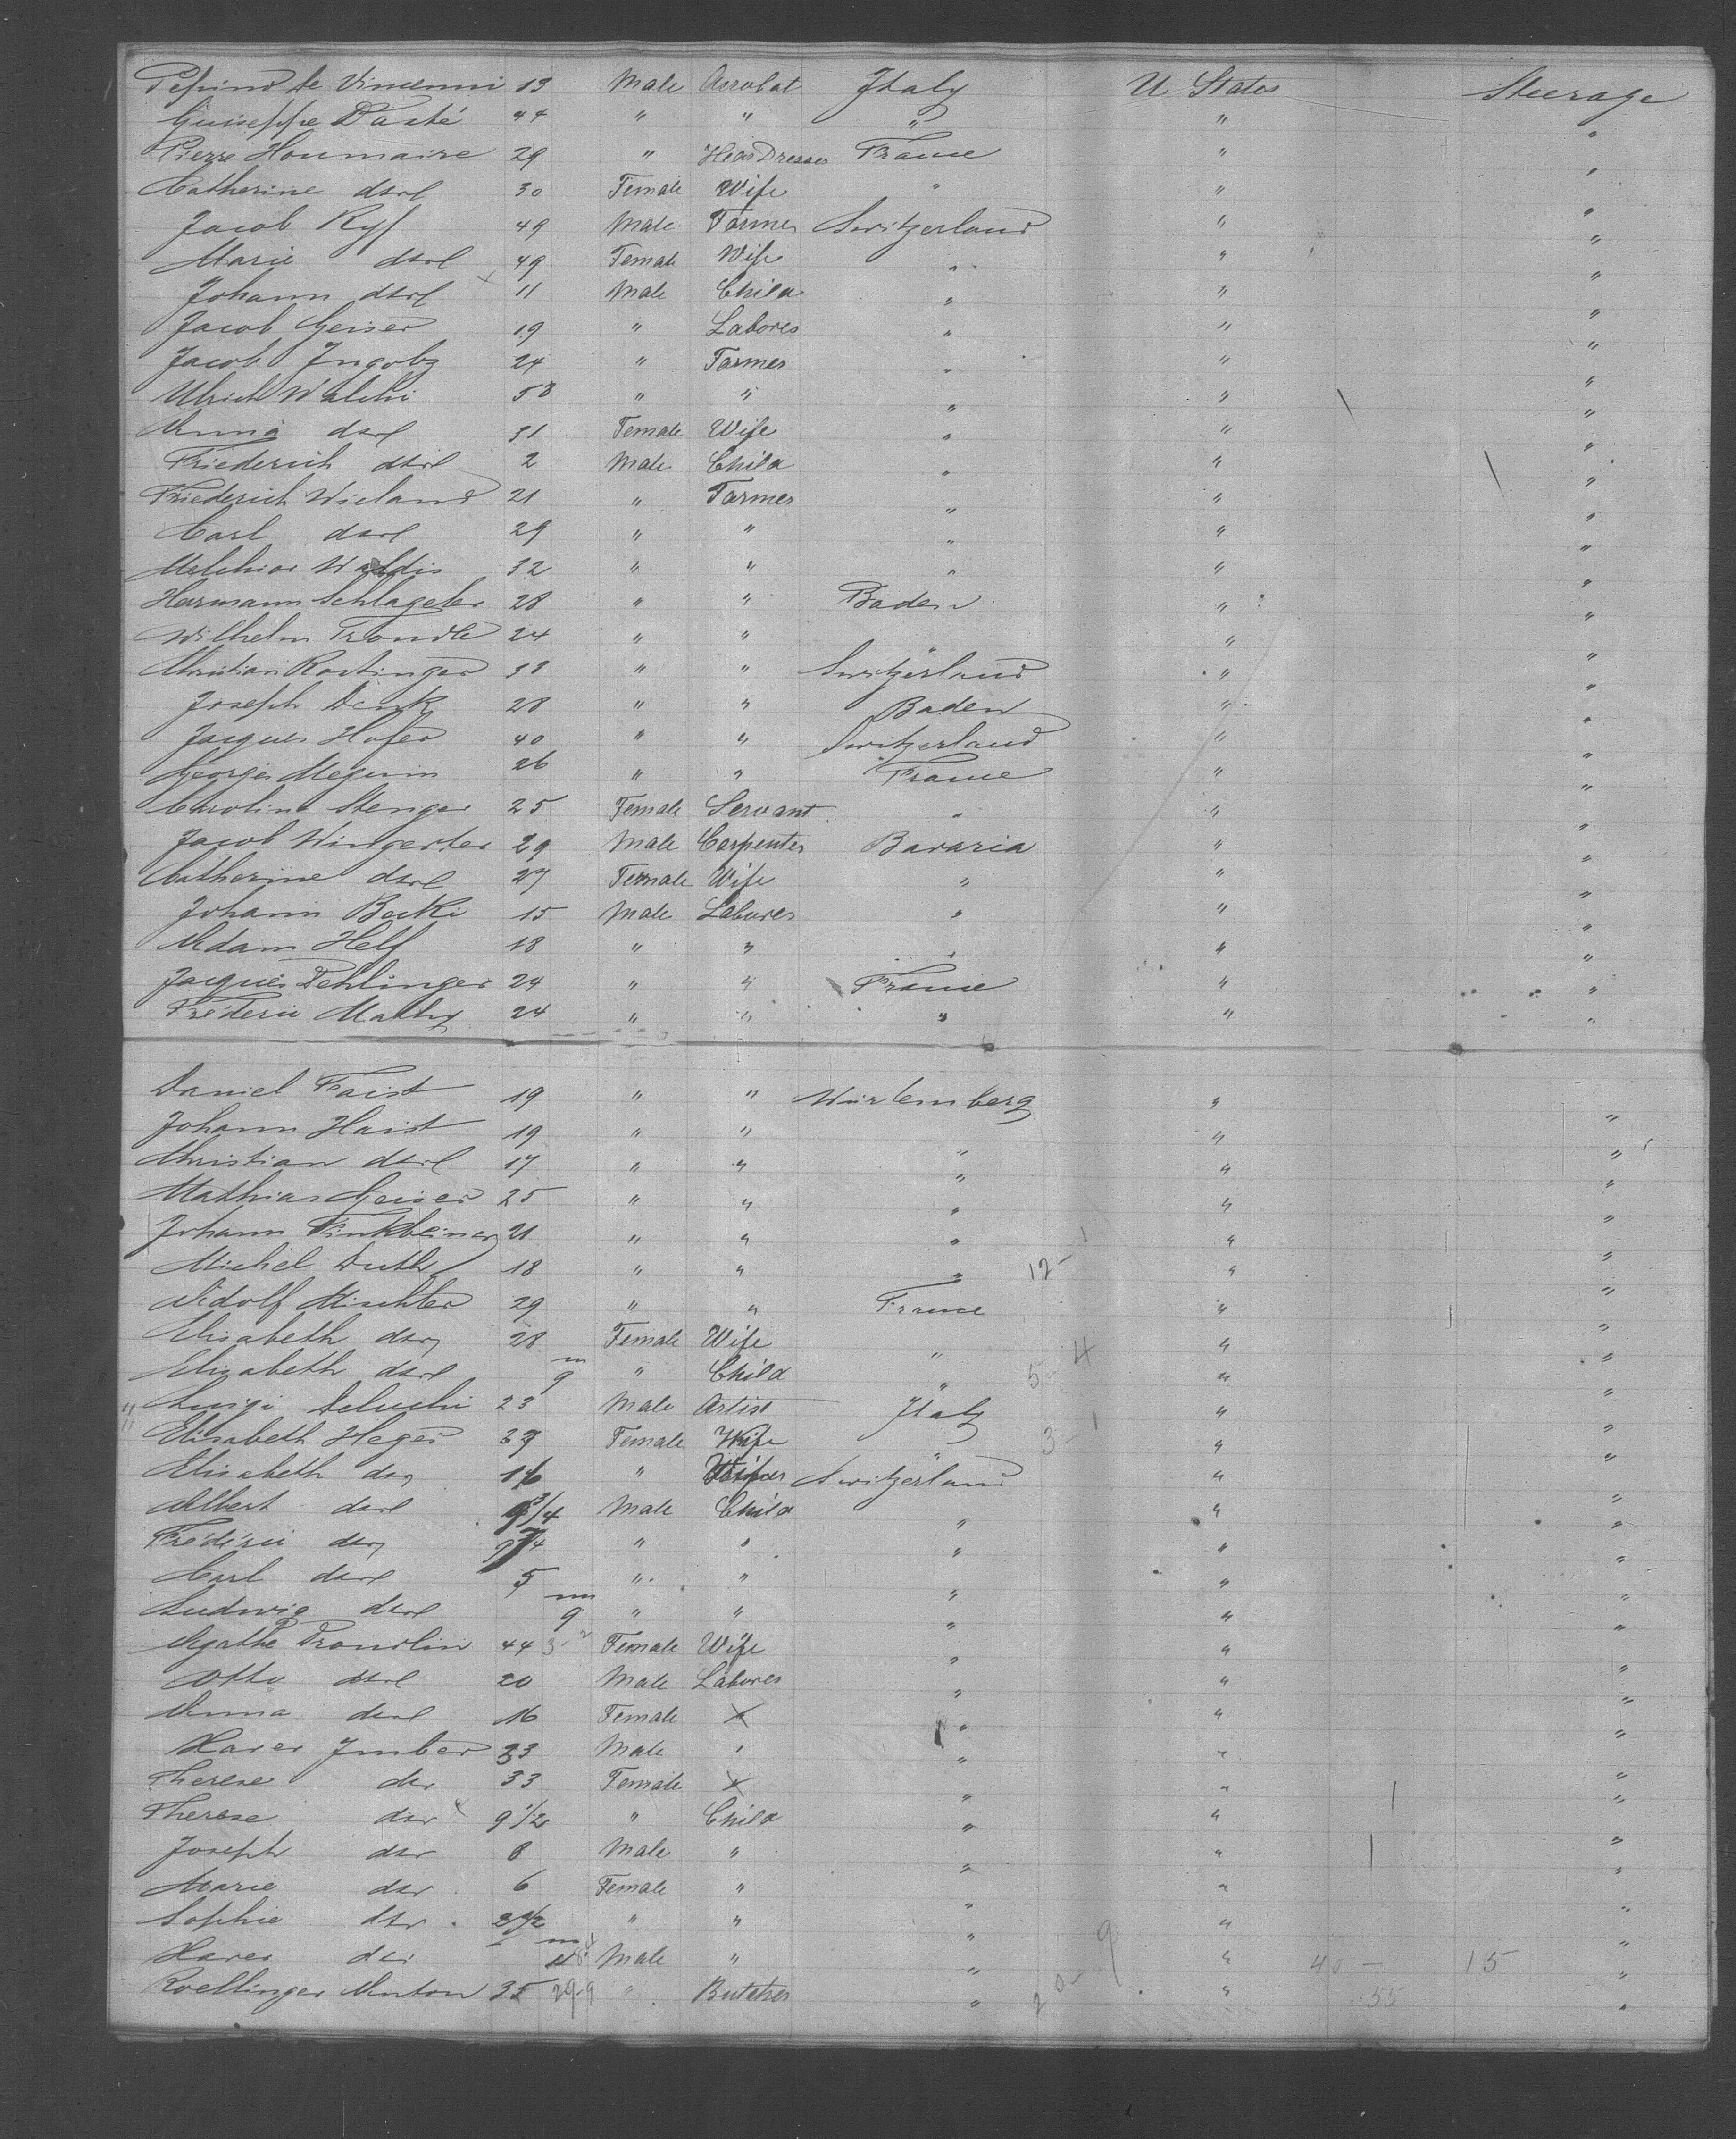 Pepino de Vincenni 13 Male Acrobat Italy U States Steerage
Guiseppe Dasté 44 " " " " "
Pierre Houmaire 29 " Hear Dresser France " "
Catherine dsrl 30 Female Wife " " "
Jacob Ryf 49 Male Farmer Switzerland " "
Marie dsrl 49 Female Wife " " "
Johann dsrl 11 Male Child " " "
Jacob Geiser 19 " Laborer " " "
Jacob Ingoby 24 " Farmer " " "
Ulrich Walchi 58 " " " " "
Anna dsrl 31 Female Wife " " "
Friederich dsrl 2 Male Child " " "
Friederich Wieland 21 " Farmer " " "
Carl dsrl 29 " " " " "
Melchior Waldis 32 " " " " "
Hermann Schlageter 28 " " Baden " "
Wilhelm Trondle 24 " " " "
Christian Rastinger 38 " " Switzerland " "
Joseph Denk 28 " " Baden " "
Jacques Hofer 40 " " Switzerland " "
Georges Meguin 26 " " France " "
Caroline Stenger 25 Female Servant " " "
Jacob Wingerter 29 Male Carpenter Bavaria " "
Catherine dsrl 27 Female Wife " " "
Johann Becki 15 Male Laborer " " "
Adam Helf 18 " " " " "
Jacques Dehlinger 24 " " France " "
Fréderic Mathy 24 " " " " "
Daniel Faist 19 " " Würtemberg " "
Johann Haist 19 " " " " "
Christian dsrl 17 " " " " "
Mathias Geiser 25 " " " " "
Johann Finkbeiner 21 " " " " "
Michel Duth 18 " " " 12 - 1 " "
Adolf Mischler 29 " " France " "
Elisabeth dsrl 28 Female Wife " " "
Elisabeth dsrl 9 m " Child " 5 - 4 " "
Luigi 23 Male Artist Italy " "
Elisabeth Heger 39 Female Wife " 3 - 1 " "
Elisabeth dsrl 16 " Switzerland " "
Albert dsrl 9 3/4 Male Child " " "
Fréderic dsrl " " " " "
Carl dsrl 5 " " " " "
Ludwig dsrl 9 m " " " " "
Agathe Trondlin 44 3 - 2 Female Wife " " "
Otto dsrl 20 Male Laborer " " "
Anna dsrl 16 Female " " "
Xaver Imber 33 Male " " " "
Therese dsr 33 Female " " "
Therese dsr 9 1/2 " Child " " "
Joseph dsr 8 Male " " " "
Marie dsr 6 Female " " " "
Sophie dsr 2 1/2 " " " " "
Xaver dsr m Male " " 9 " 40 - 15 "
Roellinger Anton 35 29-9 " Butcher " 20 - " 55 "